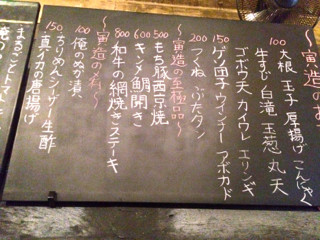 ～寅造のお
100 大根 玉子 厚揚げ こんにゃく
牛すじ 白滝 玉葱 丸天
ゴボウ天 カイワレ エリンギ
150 ゲソ団子 ウインナー アボカド
200 つくね ぶたタン
～寅造の至極品～
500 もち豚西京焼
600 キンメ鯛開き
800 和牛の網焼きステーキ
～寅造の〆～
100 俺のぬか漬
ちりめんジーサー生酢
150 真イカの唐揚げ
まるごとトマト
俺の